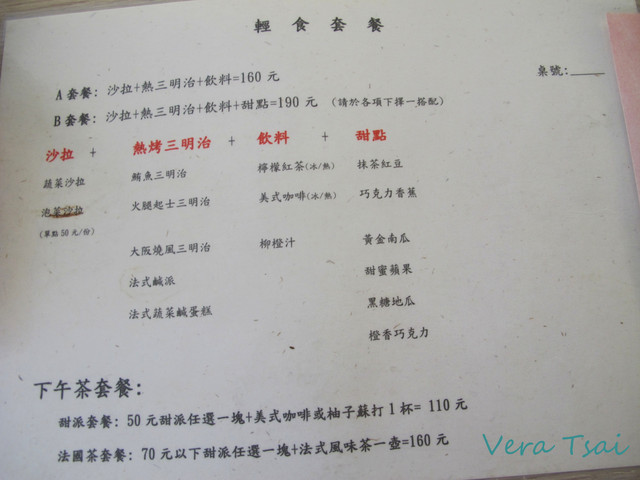 輕食套餐
桌號:____
A套餐: 沙拉+熱三明治+飲料=160元
B套餐: 沙拉+熱三明治+飲料+甜點=190元 (請於各項下擇一搭配)
沙拉 + 熱烤三明治 + 飲料 + 甜點
蔬菜沙拉 鮪魚三明治 檸檬紅茶(冰/熱) 抹茶紅豆
泡菜沙拉 火腿起士三明治 美式咖啡(冰/熱) 巧克力香蕉
(單點50元/份)
大阪燒風三明治 柳橙汁 黃金南瓜
法式鹹派 甜蜜蘋果
法式蔬菜鹹蛋糕 黑糖地瓜
橙香巧克力
下午茶套餐:
甜派套餐: 50元甜派任選一塊+美式咖啡或柚子蘇打1杯= 110元
法國茶套餐: 70元以下甜派任選一塊+法式風味茶一壺=160元
Vera Tsai